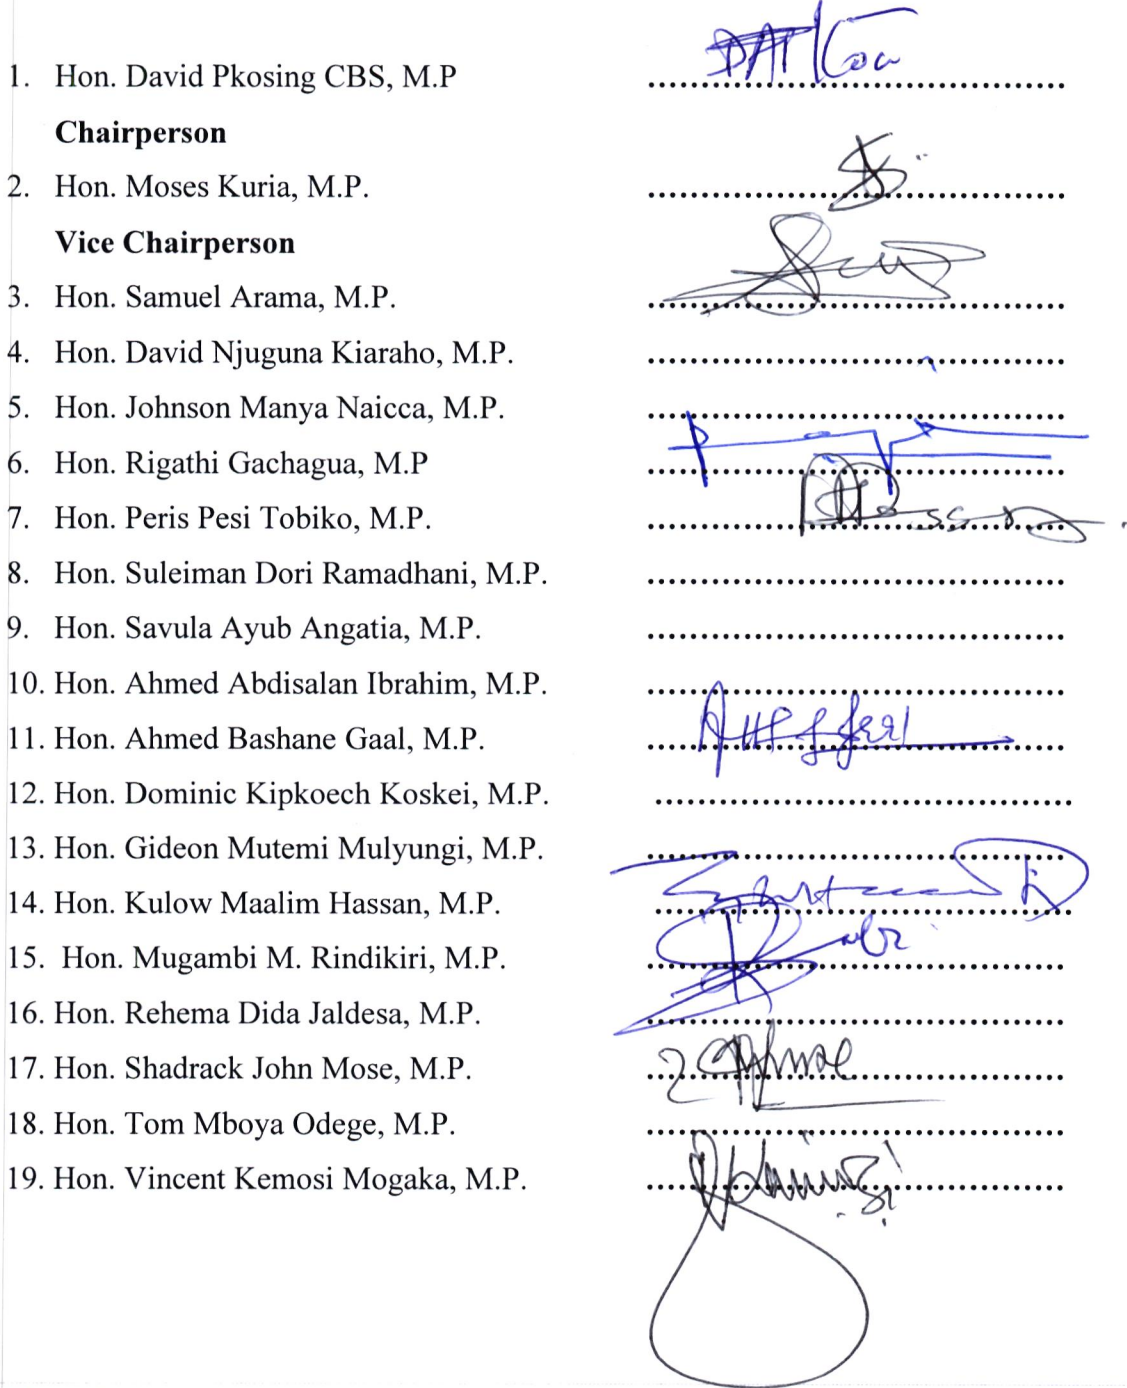 1. Hon. David Pkosing CBS, M.P ......................................
Chairperson
2. Hon. Moses Kuria, M.P. ......................................
Vice Chairperson
3. Hon. Samuel Arama, M.P. ......................................
4. Hon. David Njuguna Kiaraho, M.P. ......................................
5. Hon. Johnson Manya Naicca, M.P. ......................................
6. Hon. Rigathi Gachagua, M.P ......................................
7. Hon. Peris Pesi Tobiko, M.P. ......................................
8. Hon. Suleiman Dori Ramadhani, M.P. ......................................
9. Hon. Savula Ayub Angatia, M.P. ......................................
10. Hon. Ahmed Abdisalan Ibrahim, M.P. ......................................
11. Hon. Ahmed Bashane Gaal, M.P. ......................................
12. Hon. Dominic Kipkoech Koskei, M.P. ......................................
13. Hon. Gideon Mutemi Mulyungi, M.P. ......................................
14. Hon. Kulow Maalim Hassan, M.P. ......................................
15. Hon. Mugambi M. Rindikiri, M.P. ......................................
16. Hon. Rehema Dida Jaldesa, M.P. ......................................
17. Hon. Shadrack John Mose, M.P. ......................................
18. Hon. Tom Mboya Odege, M.P. ......................................
19. Hon. Vincent Kemosi Mogaka, M.P. ......................................